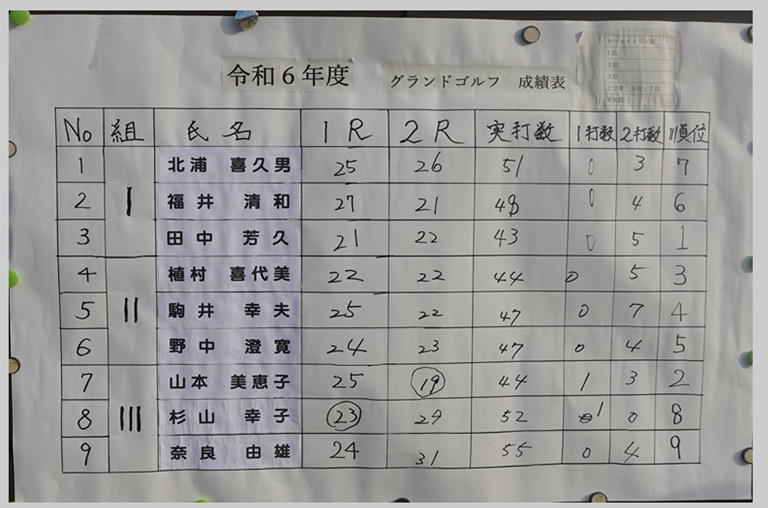 令和6年度 グランドゴルフ 成績表
1位
2位
3位
No 組 氏名 1R 2R 実打数 1打数 2打数 順位
1 北浦 喜久男 25 26 51 0 3 7
2 I 福井 清和 27 21 48 0 4 6
3 田中 芳久 21 22 43 0 5 1
4 植村 喜代美 22 22 44 0 5 3
5 II 駒井 幸夫 25 22 47 0 7 4
6 野中 澄寛 24 23 47 0 4 5
7 山本 美恵子 25 19 44 1 3 2
8 III 杉山 幸子 23 29 52 1 0 8
9 奈良 由雄 24 31 55 0 4 9